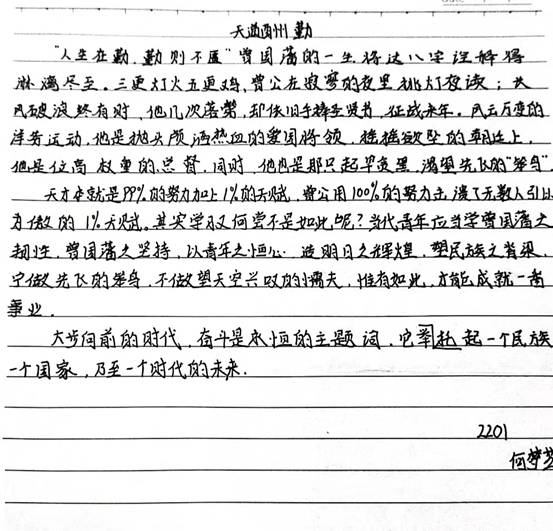 天道酬州 勤
"人生在勤，勤则不匮"曾国藩的一生将这八字诠释得
淋漓尽至。三更灯火五更鸡，曾公在寂寥的夜里挑灯夜读；长
风破浪终有时，他几次落榜，却依旧手捧圣贤书，征战来年。风云万变的
洋务运动，他是抛头颅洒热血的爱国将领，摇摇欲坠的朝廷上，
他是位高权重的总督，同时，他也是那只起早贪黑，渴望先飞的"笨鸟"
天才本就是99%的努力加上1%的天赋，曾公用100%的努力击溃了无数人引以
为傲的1%天赋。其实学习又何尝不是如此呢？当代青年应当学曾国藩之
韧性，曾国藩之坚持，以青年之恒心，造明日之辉煌，塑民族之脊梁，
宁做先飞的笨鸟，不做望天空兴叹的懦夫，惟有如此，才能成就一番
事业。
大步向前的时代，奋斗是永恒的主题词，它举起一个民族
一个国家，乃至一个时代的未来.
2201
何梦